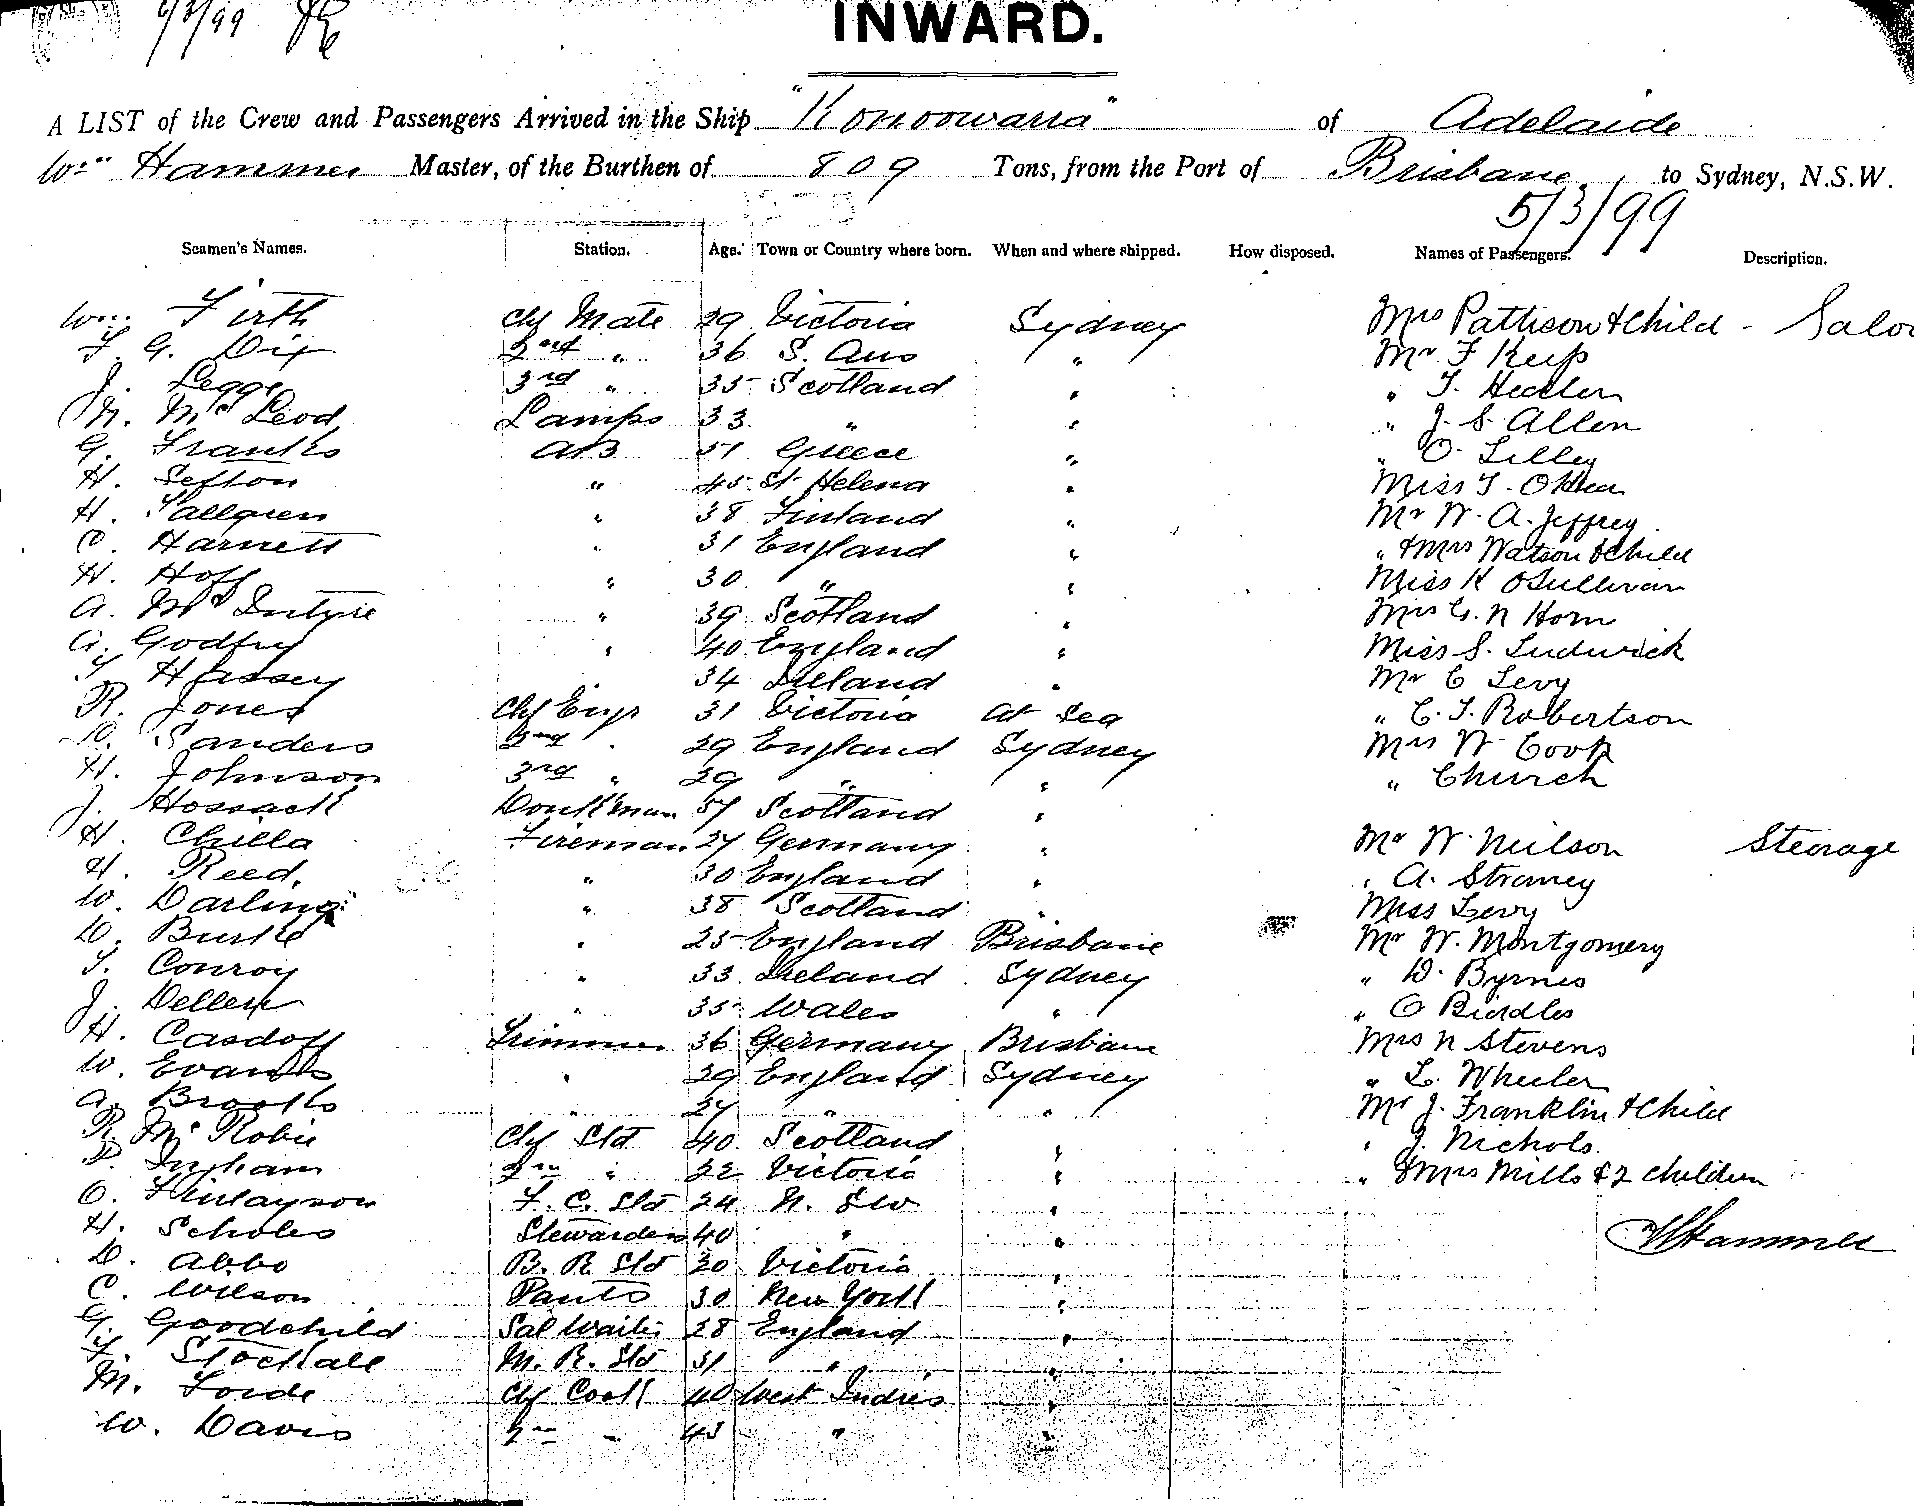 6/3/99
INWARD.
A LIST of the Crew and Passengers Arrived in the Ship "Konoowarra" of Adelaide
Wm Hammer Master, of the Burthen of 809 Tons, from the Port of Brisbane to Sydney, N.S.W.
5/3/99
Seamen's Names. Station. Age. Town or Country where born. When and where shipped. How disposed. Names of Passengers. Description.
Wm. Firth Chf Mate 29 Victoria Sydney Mrs Pattison & Child - Saloo
F. G. Dix 2nd " 36 S. Aus " Mr F Keip
J. Legge 3rd " 35 Scotland " " T. Heckler
N. McLeod Lamps 33 " " " J. S. Allen
G. Franks AB 51 Greece " " O. Lilley
H. Sefton " 45 St Helena " Miss T.
H. Sallgren " 38 Finland " Mr W. A. Jeffrey
C. Harnett " 31 England " " & Mrs Watson & Child
H. Hoff " 30 " " Miss K OSullivan
A. McIntyre " 39 Scotland " Mrs G. N Horn
A. Godfrey " 40 England " Miss S. Ludwick
T Hassey 34 Ireland " Mr C Levy
R. Jones Chf Engr 31 Victoria At Sea " C. T. Robertson
D. Sanders 2nd " 29 England Sydney Mrs W Cook
H. Johnson 3rd " 29 " " " Church
J. Hossack Donkman 57 Scotland "
H. Chilla Fireman 27 Germany " Mr W Neilson Steerage
H. Reed, " 30 England " " A.
W. Darling " 38 Scotland " Miss Levy
D. Burke " 25 England Brisbane Mr W. Montgomery
T. Conroy " 33 Ireland Sydney " D. Byrnes
J. " 35 Wales " " C Birdles
H. Casdoff Trimmer 36 Germany Brisbane Mrs N Stevens
W. Evans " 29 England Sydney " L. Wheeler
A. Brooks " 27 " " Mr J. Franklin & Child
R. McRobie Chf Std 40 Scotland " " J. Nichols.
P. Ingham 2nd " 22 Victoria " " & Mrs Mills & 2 children
C. Finlayson F. C. Std 24 N. S W "
H. Scholes Stewardess 40 " " W Hammer
D. Abbo B. R Std 20 Victoria "
C. Wilson Pants 30 New York "
G. Goodchild Sal Waiter 28 England "
F. Stockall M. R. Std 31 " "
M. Forde Chf Cook 40 West Indies "
W. Davis 2nd " 43 " "